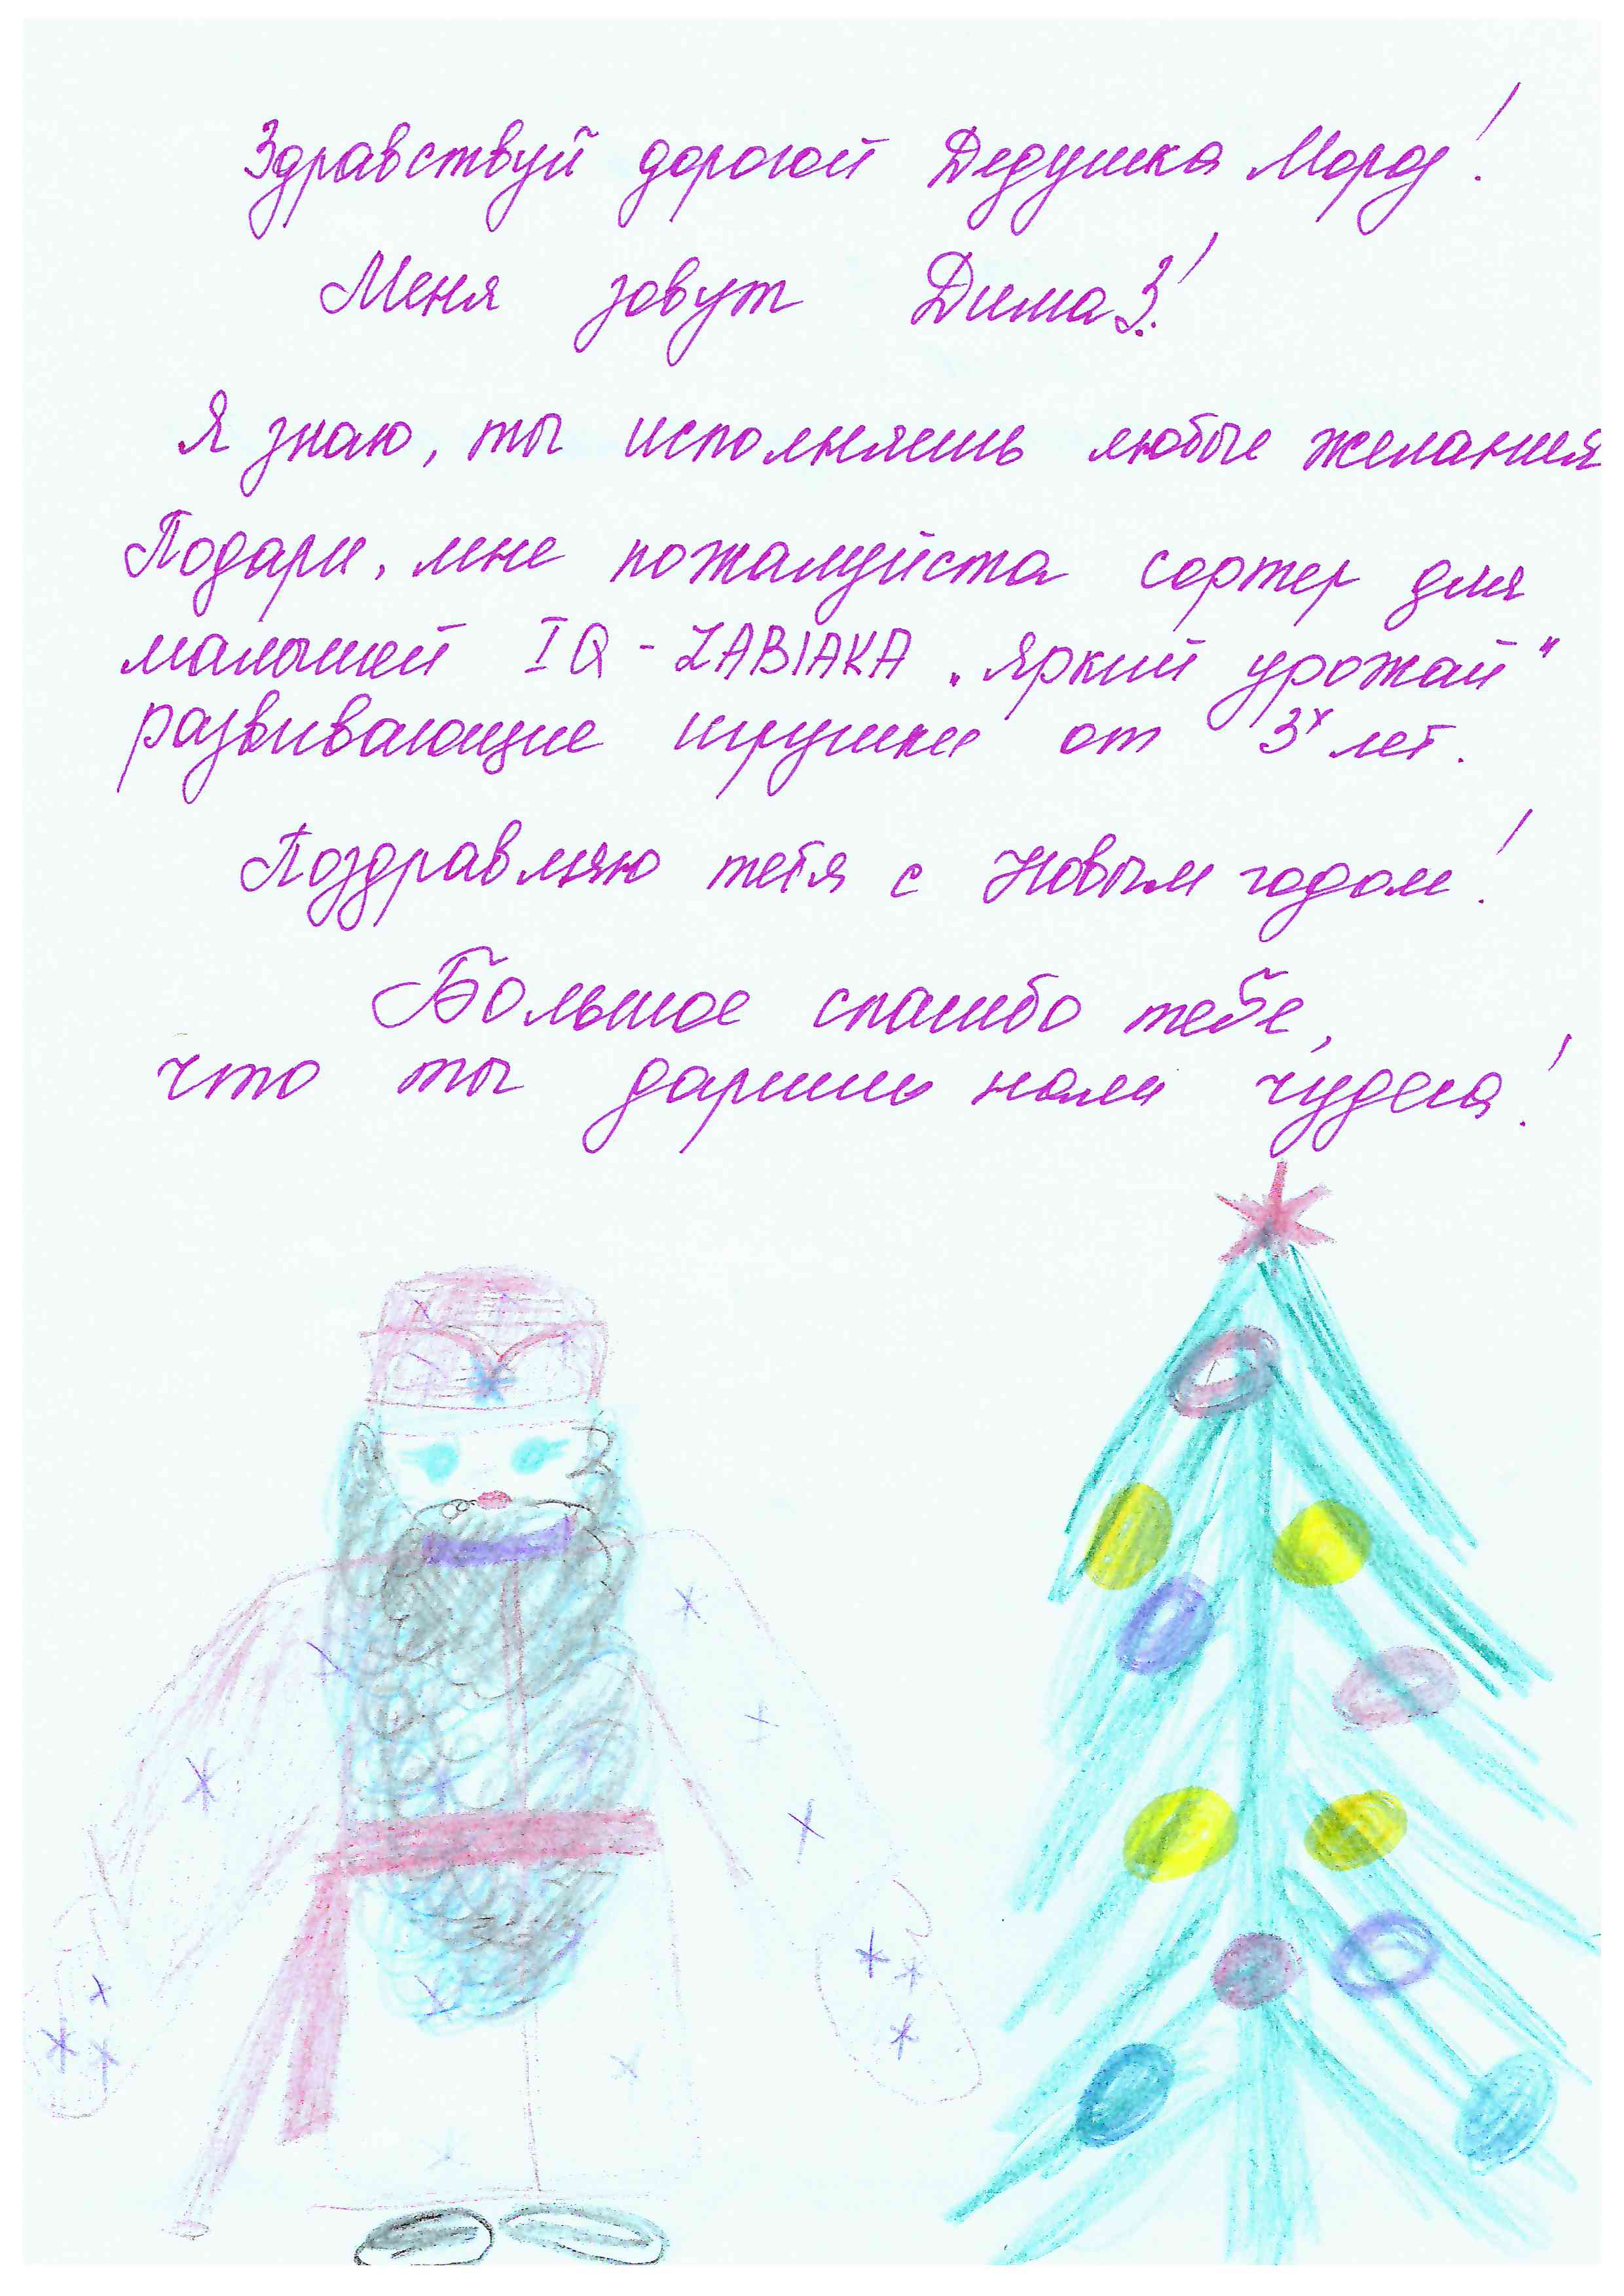 Здравствуй дорогой Дедушка Мороз!
Меня зовут Дима З.!
Я знаю, ты исполняешь любые желания
Подари, мне пожалуйста сортер для
малышей IQ-ZABIAKA „Яркий урожай"
развивающие игрушки от 3х лет.
Поздравляю тебя с Новым годом!
Большое спасибо тебе,
что ты даришь нам чудеса!